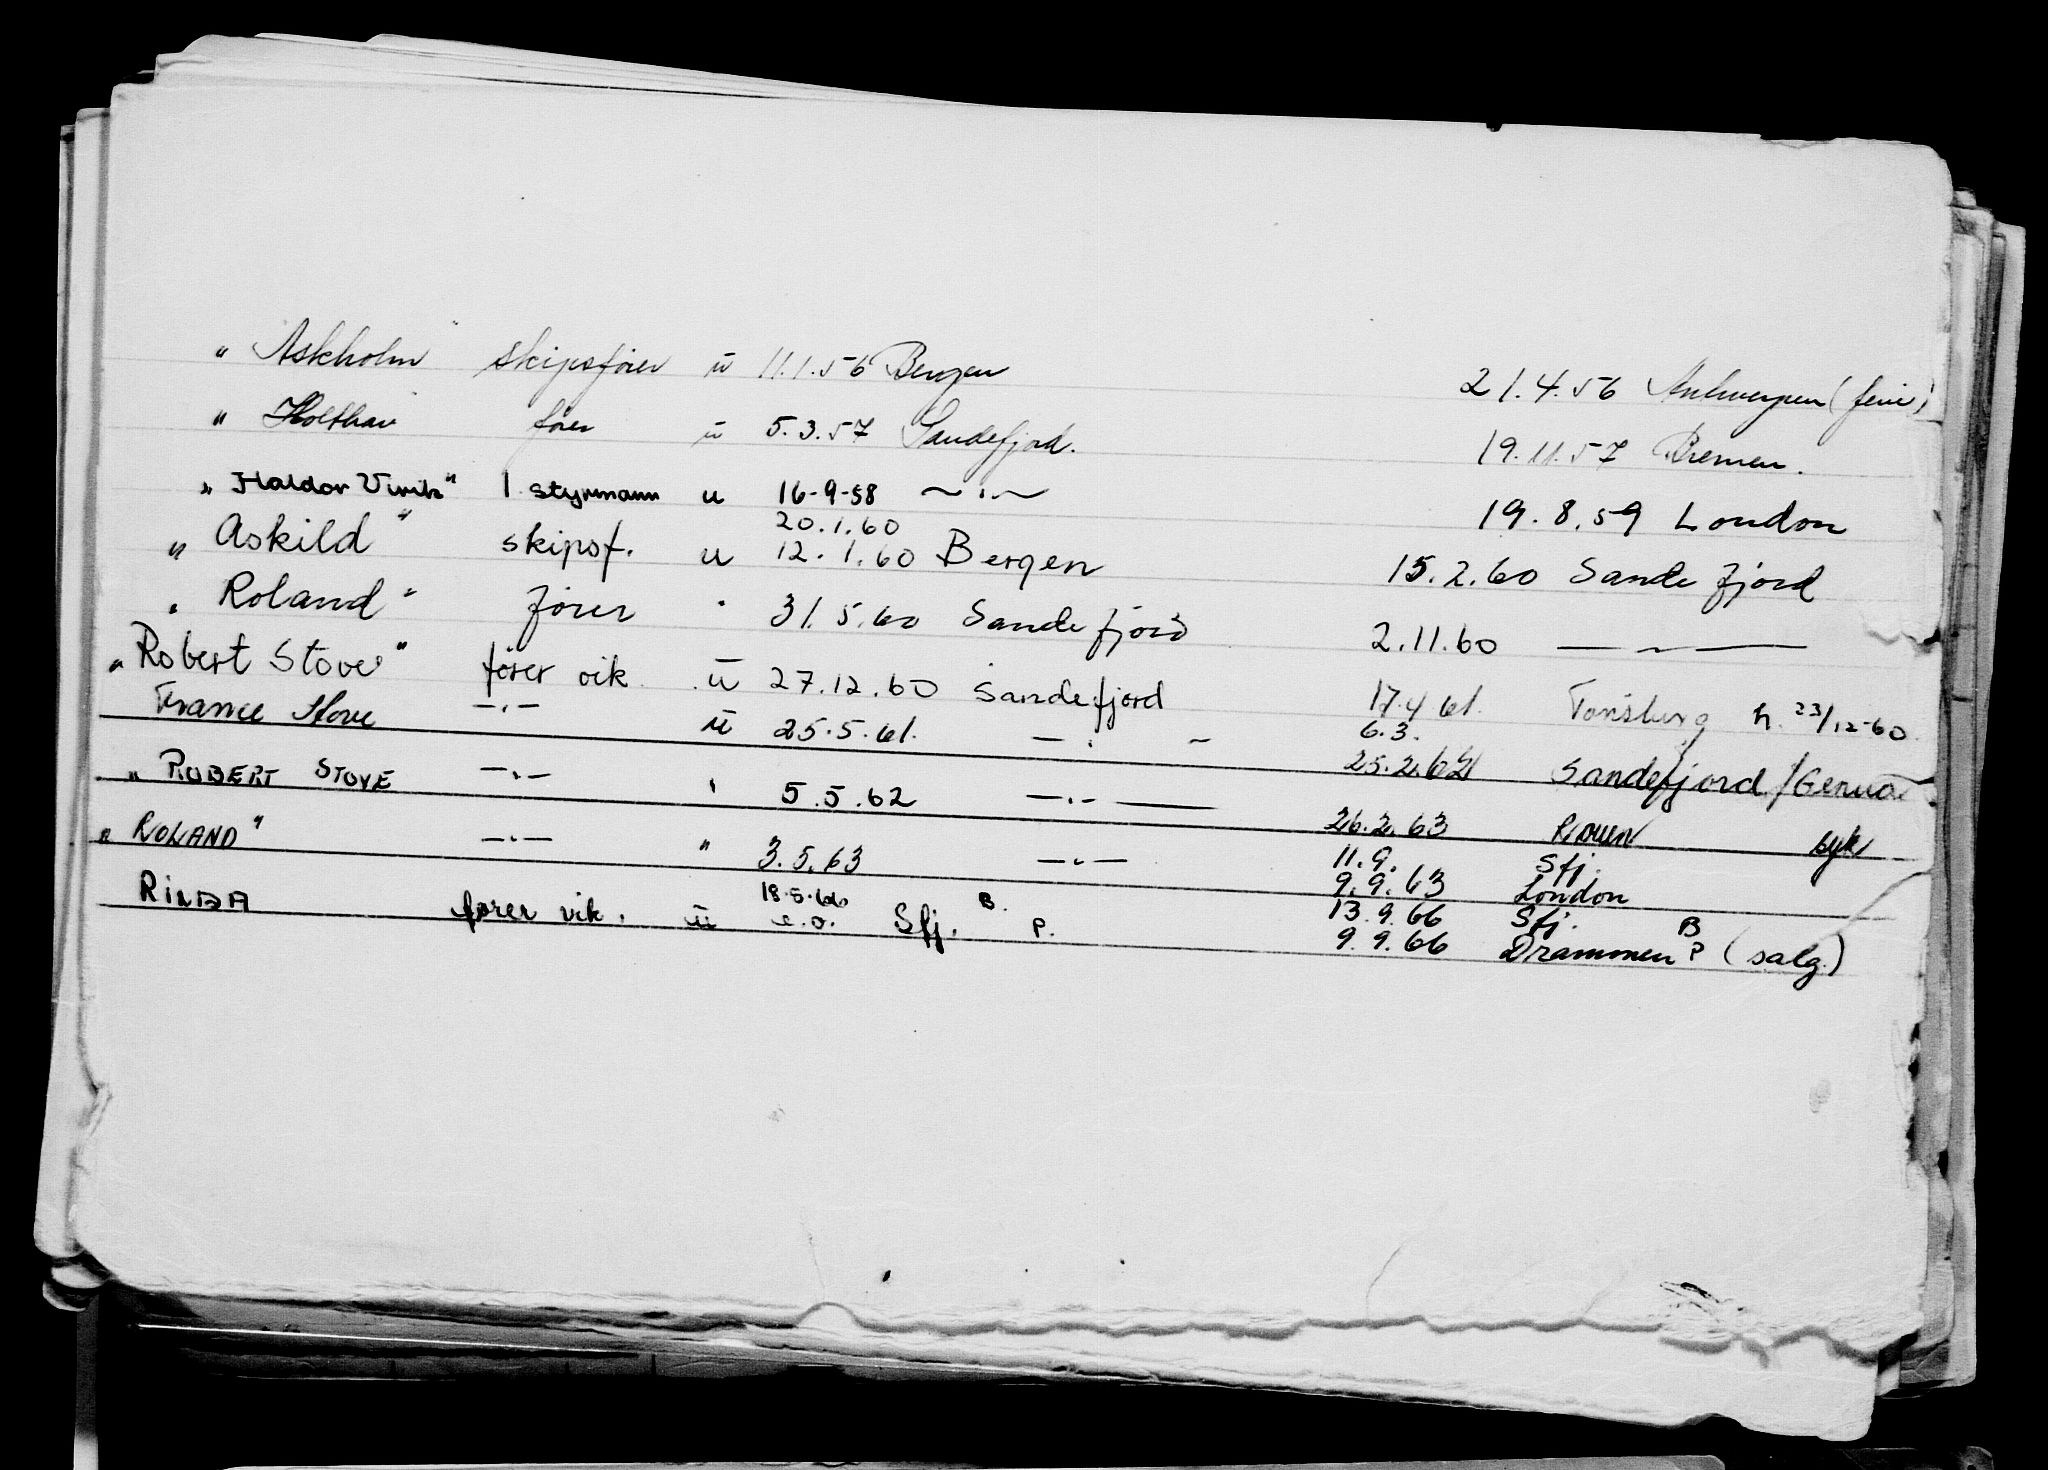 " Askholm " skipsfører u 11.1.56 Bergen 21.4.56 Antwerpen (ferie)
" Holthav fører u 5.3.57 Sandefjord. 19.11.57 Bremen.
" Haldor Virik " 1 styrmann u 16-9-58 — " — 19.8.59 London
20.1.60
" Askild " skipsf. u 12.1.60 Bergen 15.2.60 Sandefjord
" Roland " fører " 31.5.60 Sandefjord 2.11.60 — " —
" Robert Stove " fører vik. u 27.12.60 Sandefjord 17.4.61. Tønsberg h. 23/12-60
France Stove — " — u 25.5.61. — " — 6.3.
25.2.62 Sandefjord / Genua
" ROBERT STOVE — " — " 5.5.62 — " —
26.2.63 Rouen syk
" ROLAND " — " — " 3.5.63 — " — 11.9. Sfj.
9.9.63 London
RINDA fører vik. u 18.5.66 B. 13.9.66 Sfj. B
e.o. Sfj. P. 9.9.66 Drammen P (salg.)